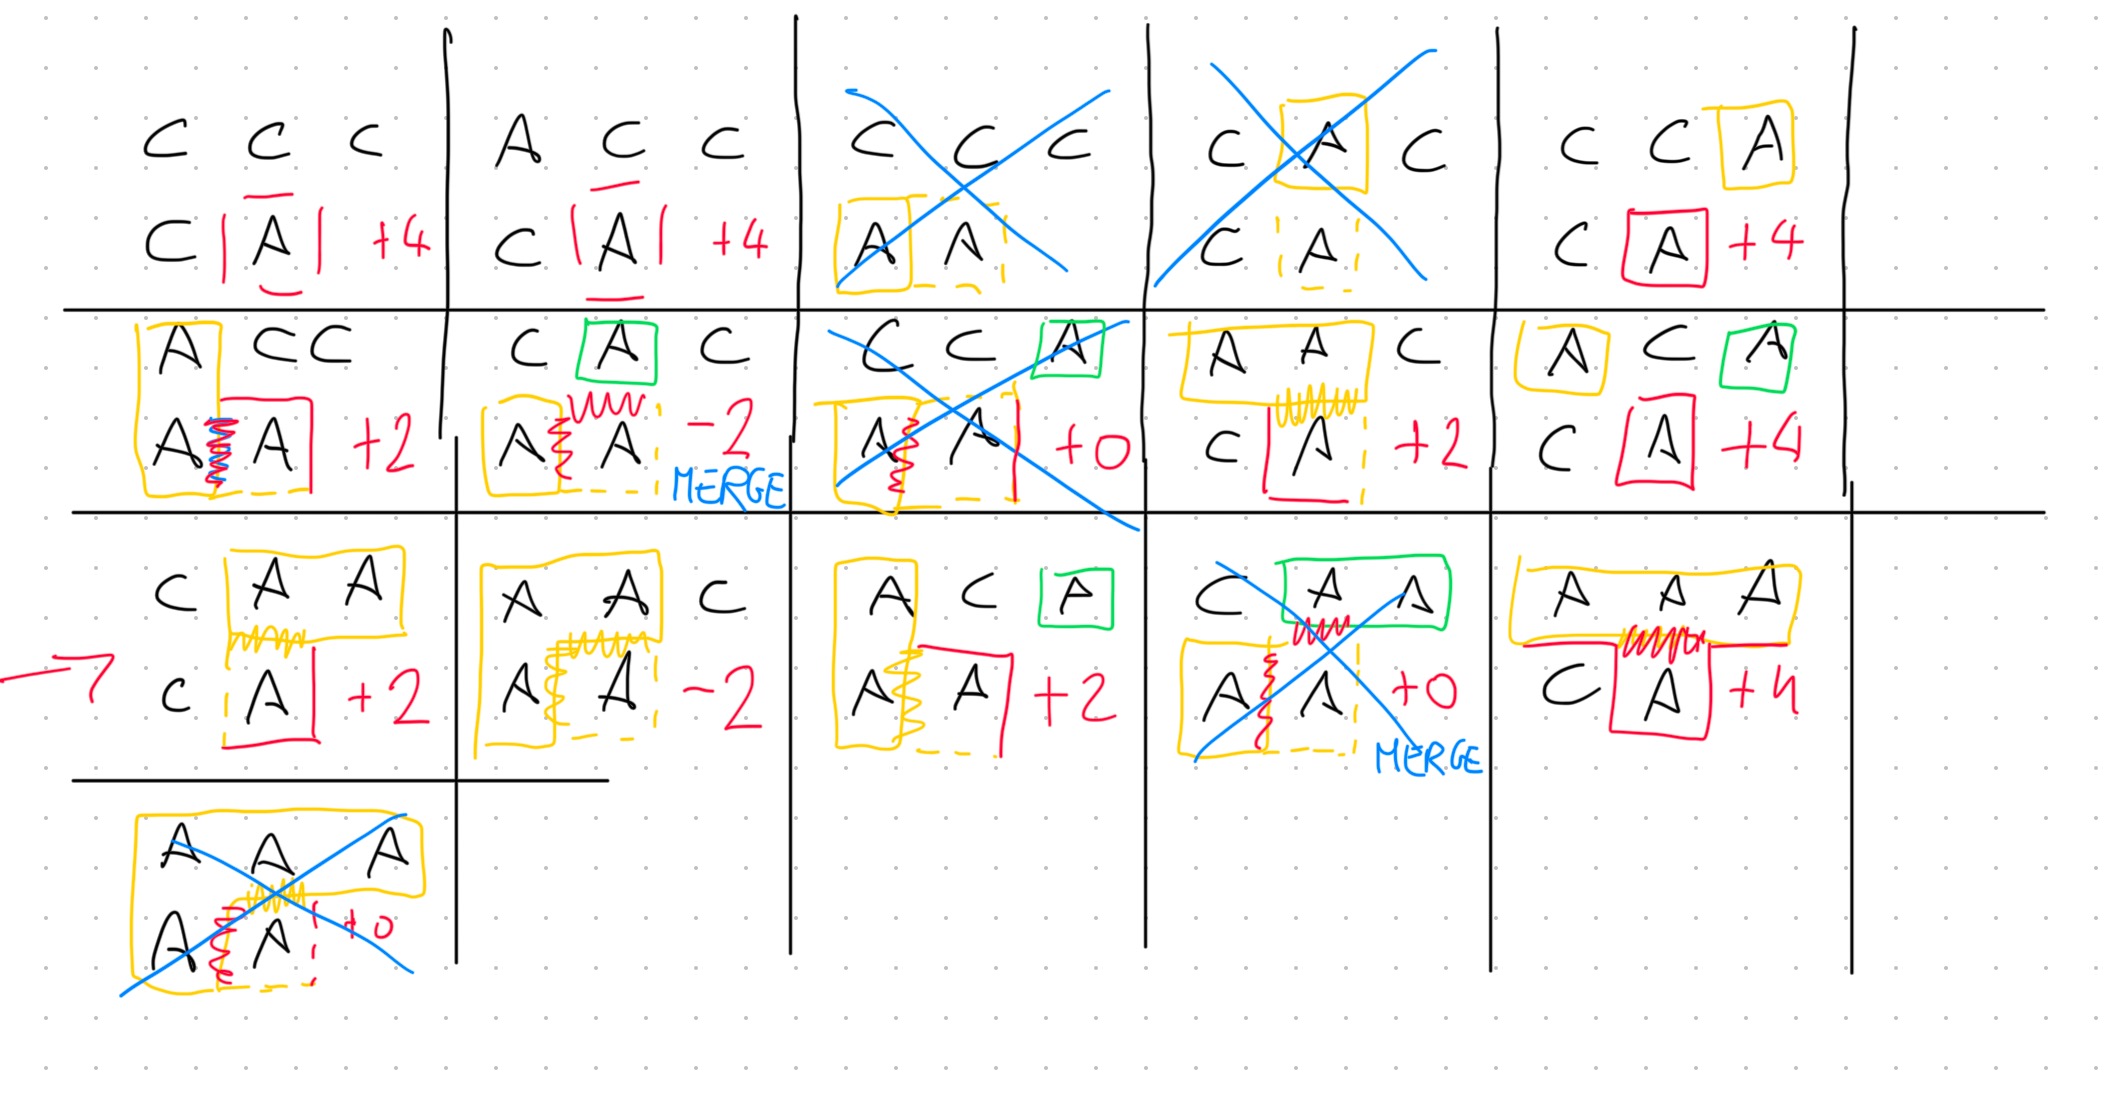 C C C
C A +4
A C C
C A +4
C C C
A A
C A C
C A
C C A
C A +4
A C C
A A +2
C A C
A A -2
MERGE
C C A
A A +0
A A C
C A +2
A C A
C A +4
C A A
C A +2
A A C
A A -2
A C A
A A +2
C A A
A A +0
MERGE
A A A
C A +4
A A A
A A +0